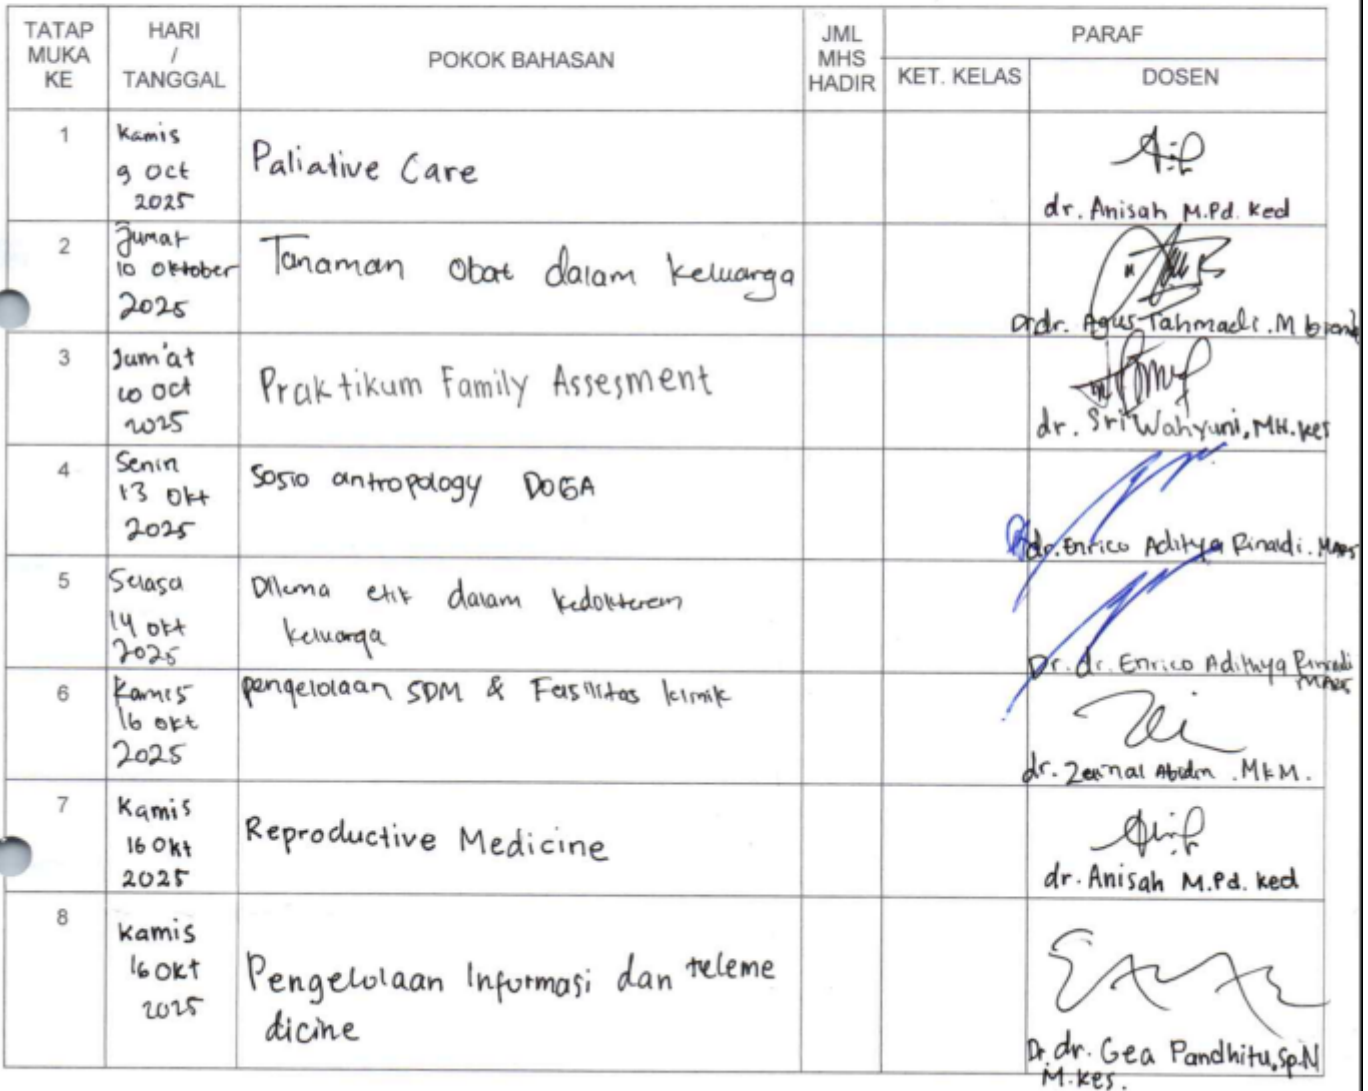 TATAP MUKA KE
HARI / TANGGAL
POKOK BAHASAN
JML MHS HADIR
PARAF
KET. KELAS
DOSEN
1
Kamis
9 Oct
2025
Paliative Care
dr. Anisah M.Pd. Ked
2
Jumat
10 Oktober
2025
Tanaman Obat dalam keluarga
Dr dr. Agus Tahmadi. M
3
Jum'at
10 Oct
2025
Praktikum Family Assesment
dr. Sri Wahyuni, MH. Kes
4
Senin
13 Okt
2025
Sosio antropology DOGA
dr. Enrico Aditya Rinaldi. MARS
5
Selasa
14 okt
2025
Dilema etik dalam kedokteran
keluarga
Dr. dr. Enrico Adithya Rinaldi
MARS
6
Kamis
16 okt
2025
pengelolaan SDM & Fasilitas klinik
dr. Zainal Abidin . MKM.
7
Kamis
16 Okt
2025
Reproductive Medicine
dr. Anisah M.Pd. Ked
8
Kamis
16 Okt
2025
Pengelolaan Informasi dan teleme
dicine
Dr. dr. Gea Pandhitu, Sp.N
M.Kes.